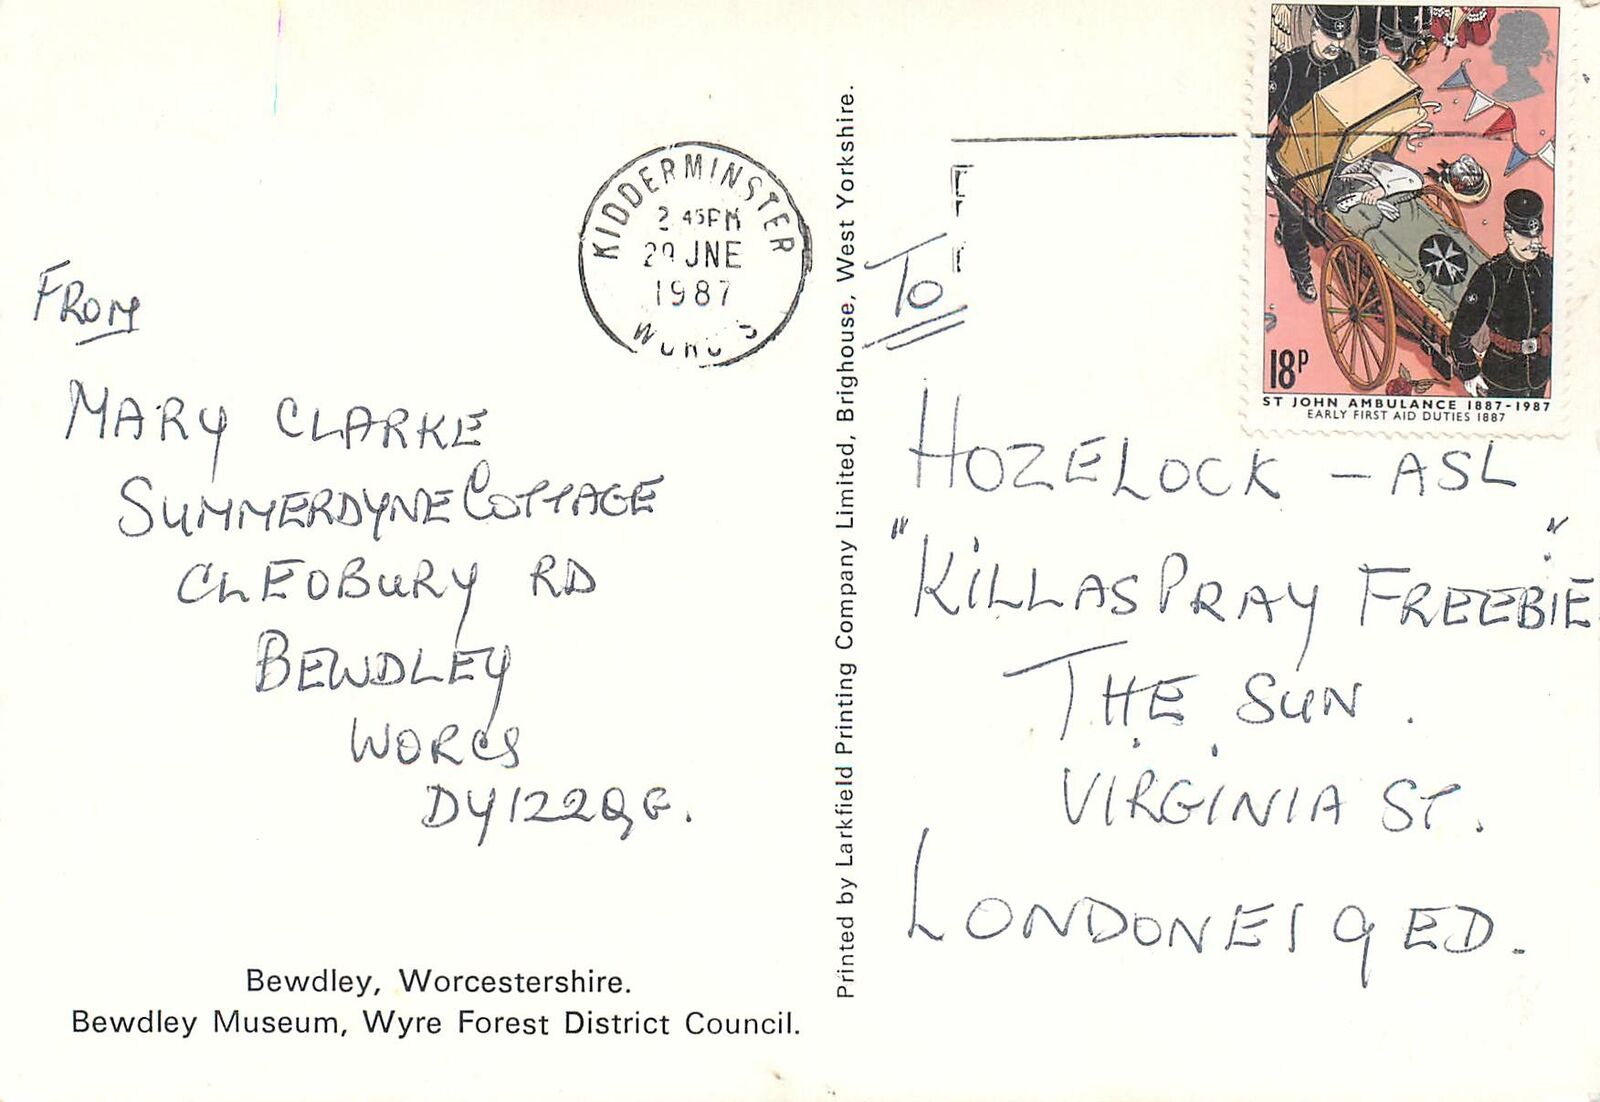 FROM
MARY CLARKE
SUMMERDYNE COTTAGE
CLEOBURY RD
BEWDLEY
WORCS
DY122QG.
Bewdley, Worcestershire.
Bewdley Museum, Wyre Forest District Council.
KIDDERMINSTER
2 45PM
JNE
1987
Printed by Larkfield Printing Company Limited, Brighouse, West Yorkshire.
18P
ST JOHN AMBULANCE 1887-1987
EARLY FIRST AID DUTIES 1887
TO
HOZELOCK - ASL
"KILLASPRAY FREEBIE"
THE SUN.
VIRGINIA ST.
LONDON E1 9 ED.